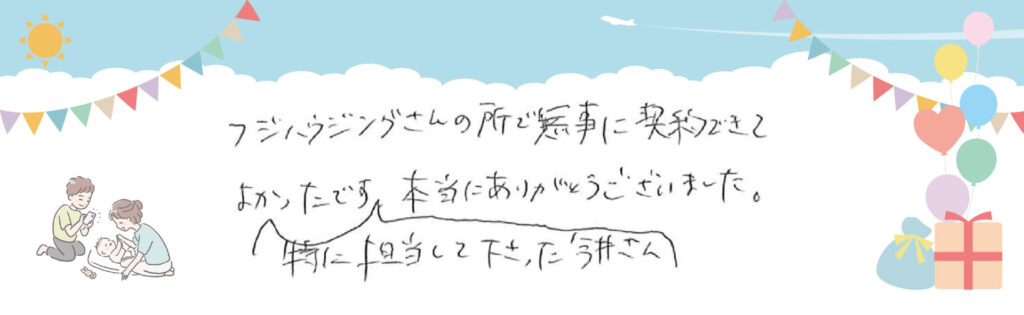 フジハウジングさんの所で無事に契約できて
よかったです 本当にありがとうございました。
特に担当して下さった今井さん